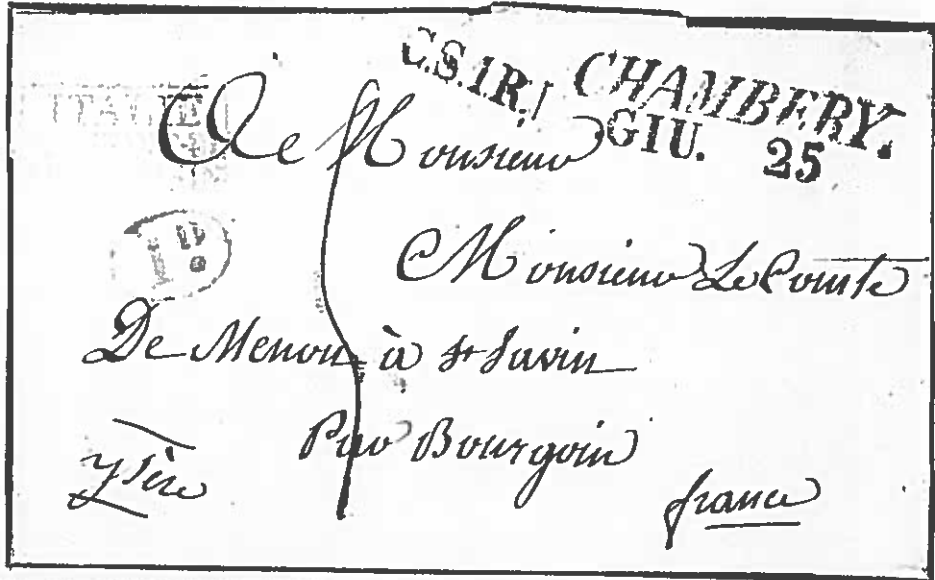 C.S.1R. CHAMBERY.
GIU. 25
ITALIE
A Monsieur
Monsieur Le Comte
De Menou à St Savin
Par Bourgoin
ysère
france